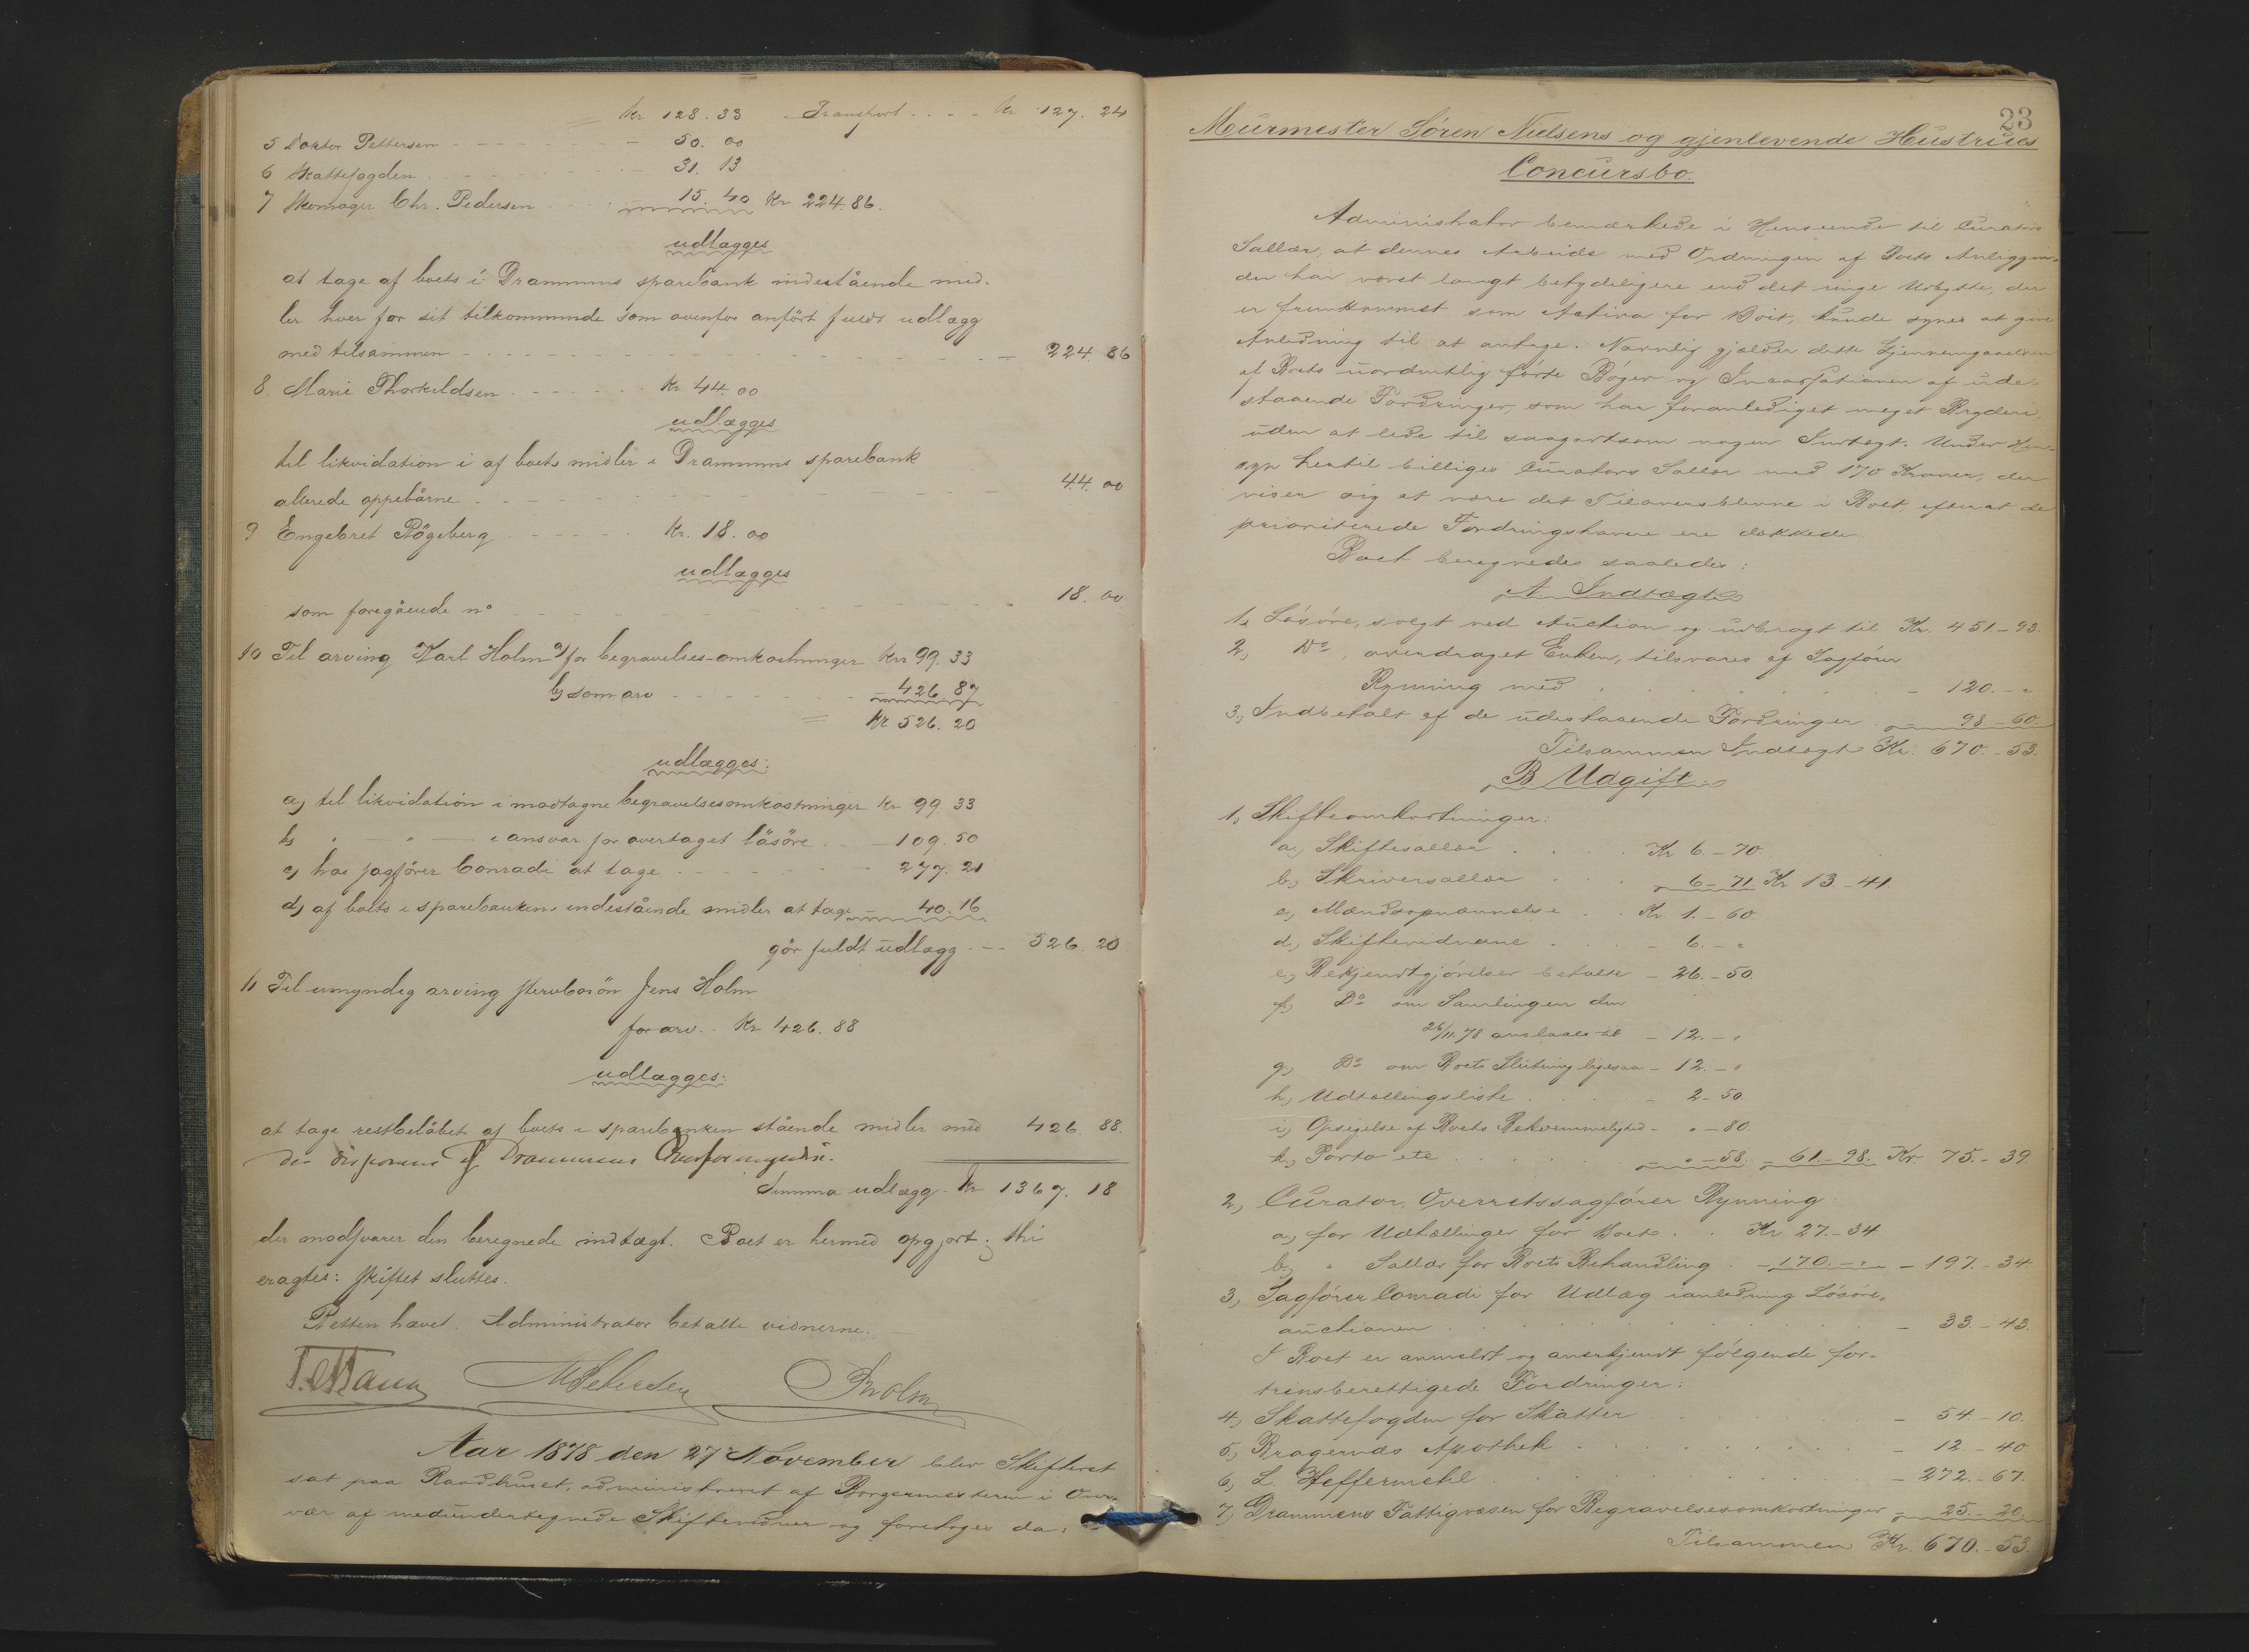 Kr 128. 33 Transport . . . . Kr 127. 24
5 Doktor Pettersen - - - - - - - 50. 00
6 Skattefogden . - - - - - - - 31. 13
7 Skomager Chr. Pedersen - - - - 15. 40 Kr 224. 86.
udlægges
at tage af boets i Drammens sparebank indestående mid-
ler hver for sit tilkommende som ovenfor anfört fuldt udlægg
med tilsammen - - - - - - - - - 224. 86
8 Marie Thorkildsen - - - - - Kr 44. 00
udlægges
til likvidation i af boets midler i Drammens sparebank
allerede oppebårne - - - - - - - 44. 00
9 Engebret Rögeberg - - - - - Kr. 18. 00
udlægges
som foregående no - - - - - - - 18. 00
10 Til arving Karl Holm a) for begravelses-omkostninger Kr 99. 33
b) som arv - - - - - - 426. 87
= Kr 526. 20
udlægges:
a) til likvidation i modtagne begravelsesomkostninger Kr 99. 33
b) " — " — i ansvar for overtaget lösöre - 109. 50
c) hos sagförer Conradi at tage - - - - - 277. 21
d) af boets i sparebanken indestående midler at tage - 40. 16
gör fuldt udlægg . - - 526. 20
11 Til umyndig arving Jens Holm
for arv. . Kr 426. 88
udlægges:
at tage restbelöbet af boets i sparebanken stående midler med 426. 88.
der disponeres af Drammens Overformynderi.
Summa udlægg - Kr 1367. 18
der modsvarer den beregnede indtægt. Boet er hermed opgjort; thi
eragtes: skiftet sluttes.
Retten hævet. Administrator betalte vidnerne. —
Holm
Aar 1878 den 27 November blev Skifteret
sat paa Raadhuset, administreret af Borgermesteren i Over-
vær af medundertegnede Skiftevidner og foretoges da:
23
Murmester Sören Nielsens og gjenlevende Hustrues
Concursbo.
Administrator bemærkede i Henseende til Curators
Sallær, at dennes Arbeide med Ordningen af Boets Anliggen-
der har været langt betydeligere end det ringe Udbytte, der
er fremkommet som Activa for Boet, kunde synes at give
Anledning til at antage. Navnlig gjælder dette Gjennemgaaelsen
af Boets uordentlig förte Böger og Incassationen af ude-
staaende Fordringer, som har foranlediget meget Bryderi,
uden at lede til saagodtsom nogen Indtægt. Under Hen-
syn hertil billiges Curators Sallær med 170 Kroner, der
viser sig at være det Tiloversblevne i Boet, efterat de
prioriterede Fordringshavere ere dækkede.
Boet beregnedes saaledes:
A Indtægt
1, Lösöre, solgt ved Auction og udbragt til Kr. 451 - 93.
2, Do, overdraget Enken, tilsvares af Sagförer
Rynning med . . . . . . . - 120. - "
3, Indbetalt af de udestaaende Fordringer - 98 - 60.
Tilsammen Indtægt Kr. 670. - 53.
B Udgift
1, Skifteomkostninger:
a, Skiftesallær . . . . Kr 6. - 70.
b, Skriversallær . . . 6 - 71 Kr 13 - 41
c, Mændsopnævnelse . . Kr. 1. - 60.
d, Skiftevidnerne . - 6. - "
e, Bekjendtgjörelser betalte - 26. - 50.
f, Do om Samlingen den
26/11 78 anslaaes til - 12. - "
g, Do om Boets Slutning ligesaa - 12. - "
h, Udtællingsliste . . . . - 2 - 50.
i, Opsigelse af Boets Bekvemmelighed - " - 80.
k, Porto etc . . . . . - " - 58. - 61. - 98. Kr. 75. - 39.
2, Curator, Overretssagförer Rynning:
a, for Udtællinger for Boet . . Kr 27. - 34
b, " Sallær for Boets Behandling . - 170. - " - 197. - 34
3, Sagförer Conradi for Udlæg ianledning Lösöre-
auctionen . . . . . . . . . - 33 - 43.
I Boet er anmeldt og anerkjendt fölgende for-
trinsberettigede Fordringer:
4, Skattefogden for Skatter . . . . - 54 - 10.
5, Bragernæs Apothek . . . . . . - 12 - 40
6, L. Heffermehl . . . . . . - 272. - 67.
7, Drammens Fattigvæsen for Begravelsesomkostninger - 25. - 20.
Tilsammen Kr. 670. - 53.